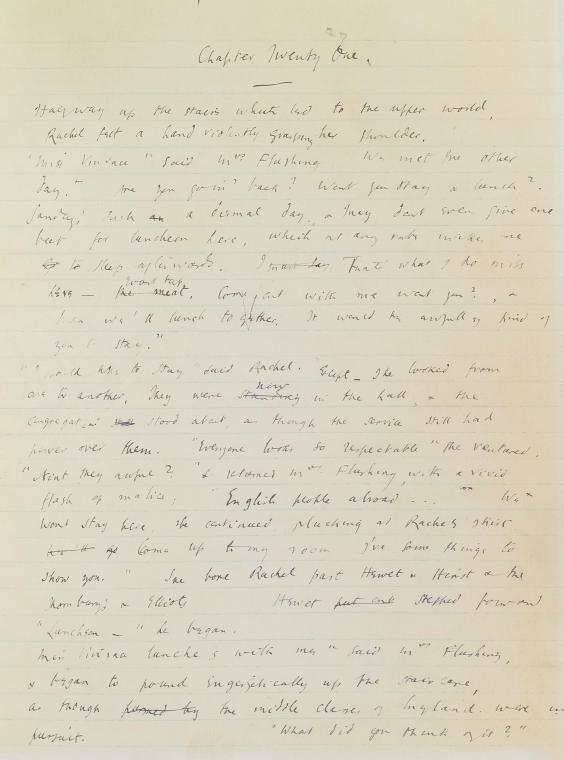 Chapter Twenty One.
Half way up the stairs which led to the upper world,
Rachel felt a hand violently grasping her shoulder.
"Miss Vinrace" said Mrs Flushing We met the other
day." Are you goin' back? Wont you stay & lunch?
Sunday; such a dismal day, & they dont even give one
beef for luncheon here, which at any rate makes one
to sleep afterwards. Thats what I do miss
here – the roast meat. Come out with me wont you?, &
then we'll lunch together. It would be awfully kind of
you to stay."
"I would like to stay" said Rachel. "Except – she looked from
one to another. They were standing now in the hall, & the
congregation still stood about, as though the service still had
power over them. "Everyone looks so respectable" she ventured.
"Aint they awful?" & returned Mrs Flushing, with a vivid
flash of malice; "English people abroad ... " We
wont stay here, she continued plucking at Rachels skirt
Come up to my room I've some things to
show you." She bore Rachel past Hewet & Hirst & the
Thornburys & Elliots Hewet put out stepped forward
"Luncheon – " he began.
Miss Vinrace lunches with me" said Mrs Flushing,
& began to pound energetically up the staircase,
as though the middle classes of England were in
pursuit. "What did you think of it?"